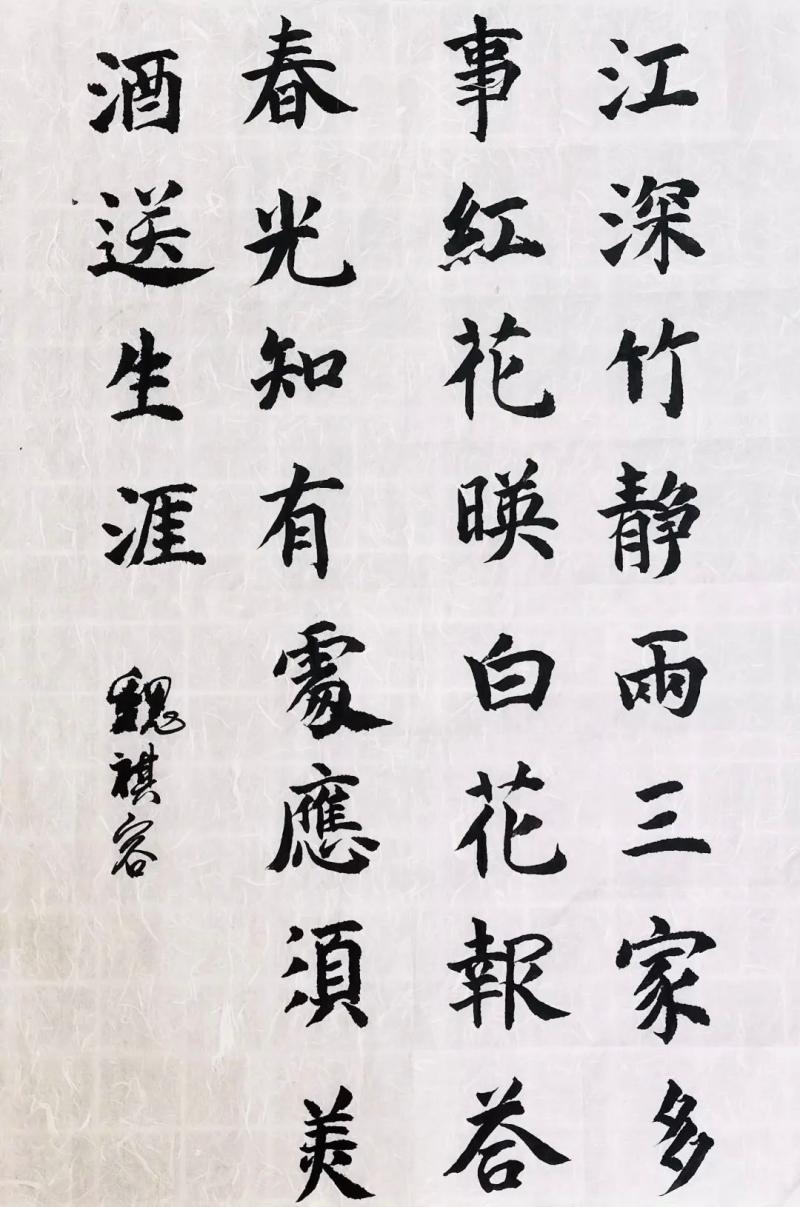 江深竹靜雨三家多
事紅花暎白花報荅
春光知有處應湏美
酒送生涯
魏祺容